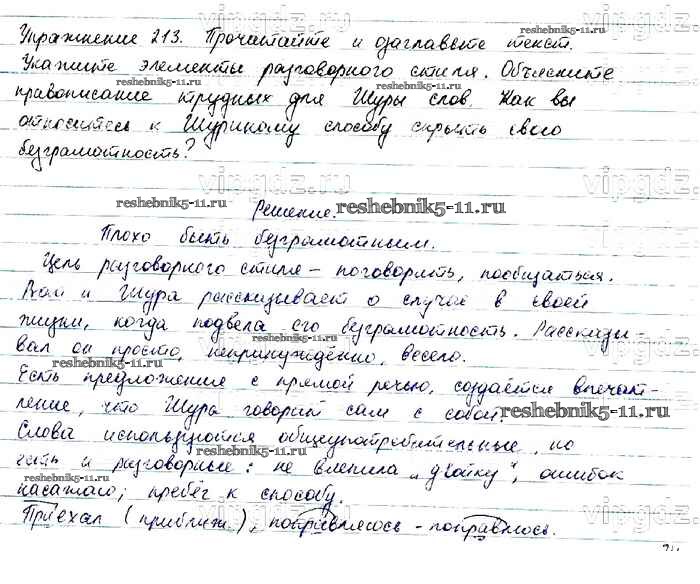 Упражнение 213. Прочитайте и озаглавьте текст.
Укажите элементы разговорного стиля. Объясните
правописание трудных для Шуры слов. Как вы
относитесь к Шуриному способу скрыть свою
безграмотность?
Решение.
Плохо быть безграмотным.
Цель разговорного стиля - поговорить, пообщаться.
Вот и Шура рассказывает о случае в своей
жизни, когда подвела его безграмотность. Рассказы-
вал он просто, непринуждённо, весело.
Есть предложение с прямой речью, создаётся впечат-
ление, что Шура говорит сам с собой.
Слова используются общеупотребительные, но
есть и разговорные: не влепила „двойку", ошибок
насажаю; прибег к способу.
Приехал (приближ.), поправляюсь - поправлюсь.
reshebnik5-11.ru
vipgdz.ru